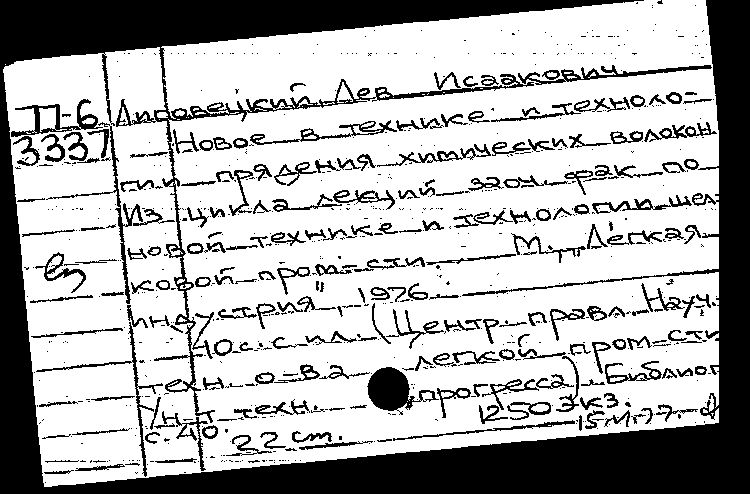 П-6 Липовецкий, Лев Исаакович.
3337 Новое в технике и техноло-
гии прядения химических волокон.
Из цикла лекций заоч. фак. по
новой технике и технологии шел-
ковой пром-сти. М., „Легкая
индустрия", 1976.
40 с. с ил. (Центр. правл. Науч.
техн. о-ва легкой пром-сти
Ун-т техн. прогресса). Библиог
с. 40. 22 см. 1250 экз.
15.VI.77.